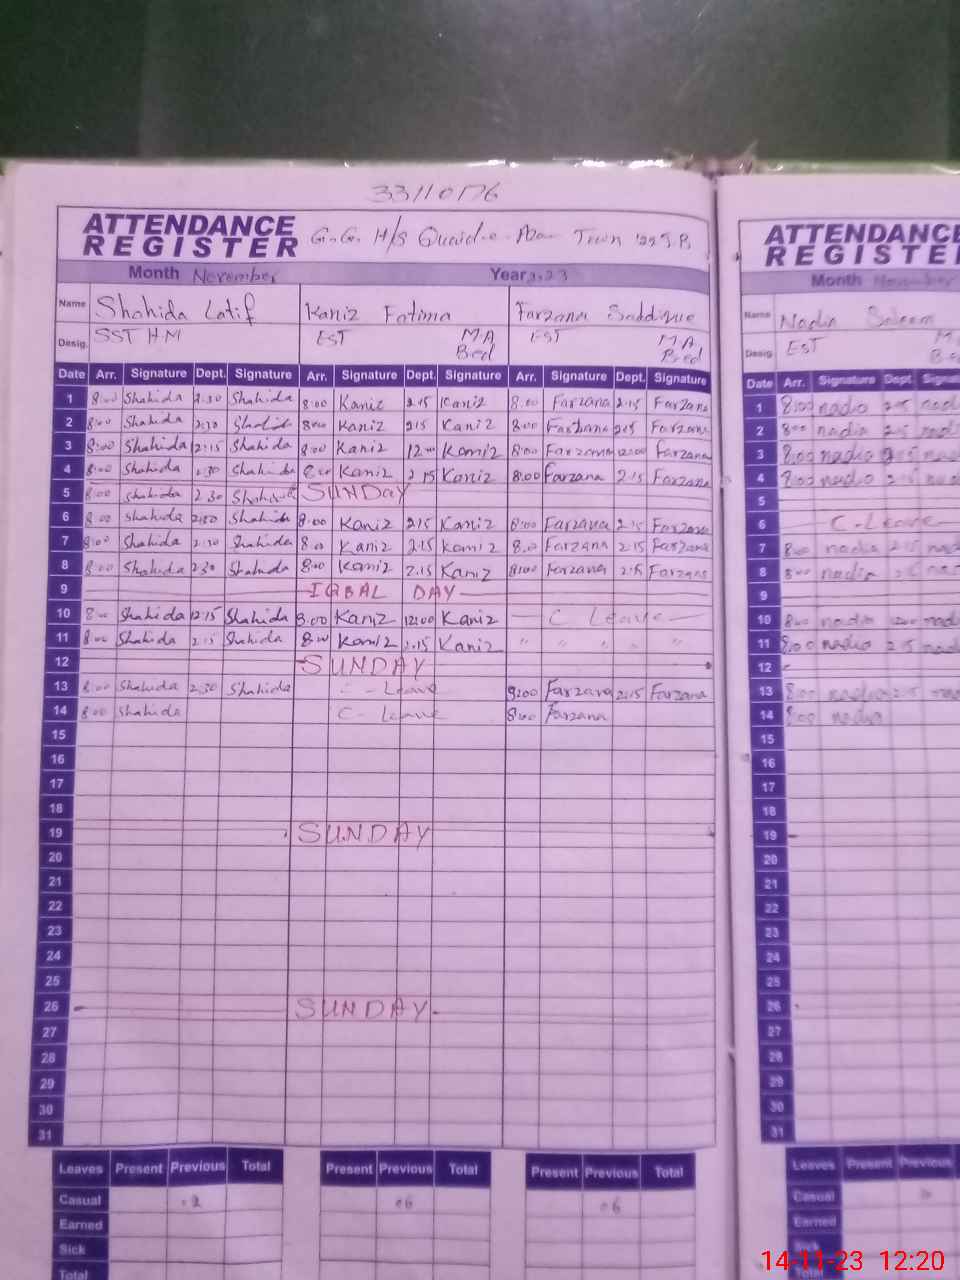 33110176
ATTENDANCE REGISTER
Month November Year 2023
Name Shahida Latif Kaniz Fatima Farzana
Desig. SST HM EST M.A B.ed EST M.A, B.ed
Date Arr. Signature Dept. Signature Arr. Signature Dept. Signature Arr. Signature Dept. Signature
1 8:00 Shahida 2:30 Shahida 8:00 Kaniz 2:15 Kaniz 8:00 Farzana 2:15 Farzana
2 8:00 Shahida 2:30 Shahida 8:00 Kaniz 2:15 Kaniz 8:00 Farzana 2:15 Farzana
3 8:00 Shahida 12:15 Shahida 8:00 Kaniz 12:00 Kaniz 8:00 Farzana 12:00 Farzana
4 8:00 Shahida 2:30 Shahida 8:00 Kaniz 2:15 Kaniz 8:00 Farzana 2:15 Farzana
5 8:00 Shahida 2:30 Shahida SUNDAY
6 8:00 Shahida Shahida 8:00 Kaniz 2:15 Kaniz 8:00 Farzana 2:15 Farzana
7 8:00 Shahida 2:30 Shahida 8:00 Kaniz 2:15 Kaniz 8:00 Farzana 2:15 Farzana
8 8:00 Shahida 2:30 Shahida 8:00 Kaniz 2:15 Kaniz 8:00 Farzana 2:15 Farzana
9 IQBAL DAY
10 8:00 Shahida 12:15 Shahida 8:00 Kaniz 12:00 Kaniz C Leave
11 8:00 Shahida 2:15 Shahida 8:00 Kaniz 2:15 Kaniz " " " "
12 SUNDAY
13 8:00 Shahida 2:30 Shahida C-Leave Farzana 2:15 Farzana
14 8:00 Shahida C-Leave 8:00 Farzana
15
16
17
18
19 SUNDAY
20
21
22
23
24
25
26 SUNDAY
27
28
29
30
31
Leaves Present Previous Total Present Previous Total Present Previous Total
Casual 02 06 06
Earned
Sick
Total
ATTENDANCE
REGISTE
Month November
Name Nadia Saleem
Desig. EST
Date Arr. Signature Dept.
1 8:00 nadia 2:15
2 8:00 nadia 2:15
3 8:00 nadia
4 8:00 nadia 2:15
5
6 C-Leave
7 8:00 nadia 2:15
8 8:00 nadia 2:15
9
10 8:00 nadia 12:00
11 8:00 nadia 2:15
12
13 8:00 nadia 2:15
14 8:00 nadia
15
16
17
18
19
20
21
22
23
24
25
26
27
28
29
30
31
Leaves Present Previous
Casual
Earned
Sick
Total
14-11-23 12:20